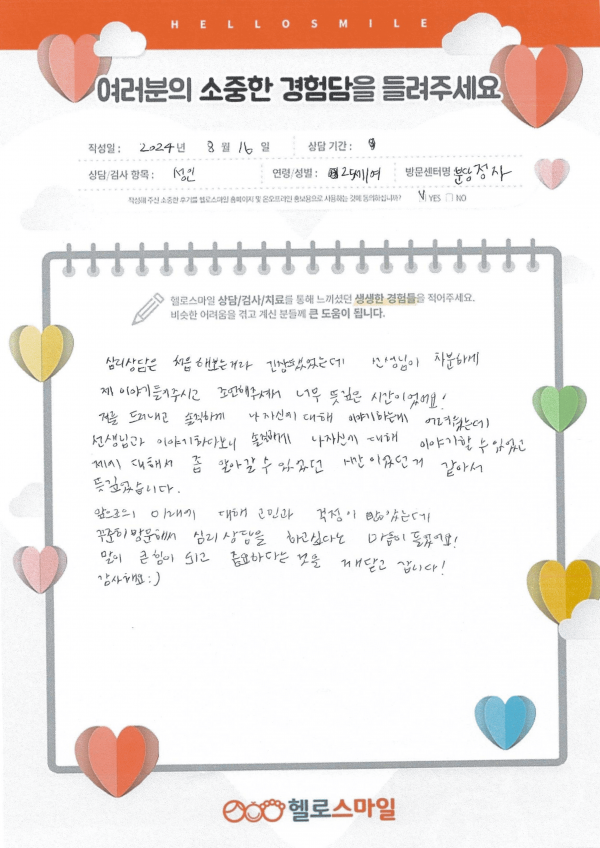 HELLOSMILE
여러분의 소중한 경험담을 들려주세요
작성일 : 2024년 8월 16일 상담 기간 :
상담/검사 항목 : 성인 연령/성별 : 25세/여 방문센터명 분당정자
작성해 주신 소중한 후기를 헬로스마일 홈페이지 및 온오프라인 홍보용으로 사용하는 것에 동의하십니까? V YES □ NO
헬로스마일 상담/검사/치료를 통해 느끼셨던 생생한 경험들을 적어주세요.
비슷한 어려움을 겪고 계신 분들께 큰 도움이 됩니다.
심리상담은 처음 해보는거라 긴장했었는데 선생님이 차분하게
제 이야기 들어주시고 조언해주셔서 너무 뜻깊은 시간이었어요!
저를 드러내고 솔직하게 나 자신에 대해 이야기하는게 어려웠는데
선생님과 이야기하다보니 솔직하게 나자신에 대해 이야기할 수 있었고
제에 대해서 좀 알아갈 수 있었던 시간이었던거 같아서
뜻깊었습니다.
앞으로의 미래에 대해 고민과 걱정이 많았는데
꾸준히 방문해서 심리상담을 하고싶다는 마음이 들었어요!
말이 큰힘이 되고 중요하다는 것을 깨닫고 갑니다!
감사해요:)
헬로스마일